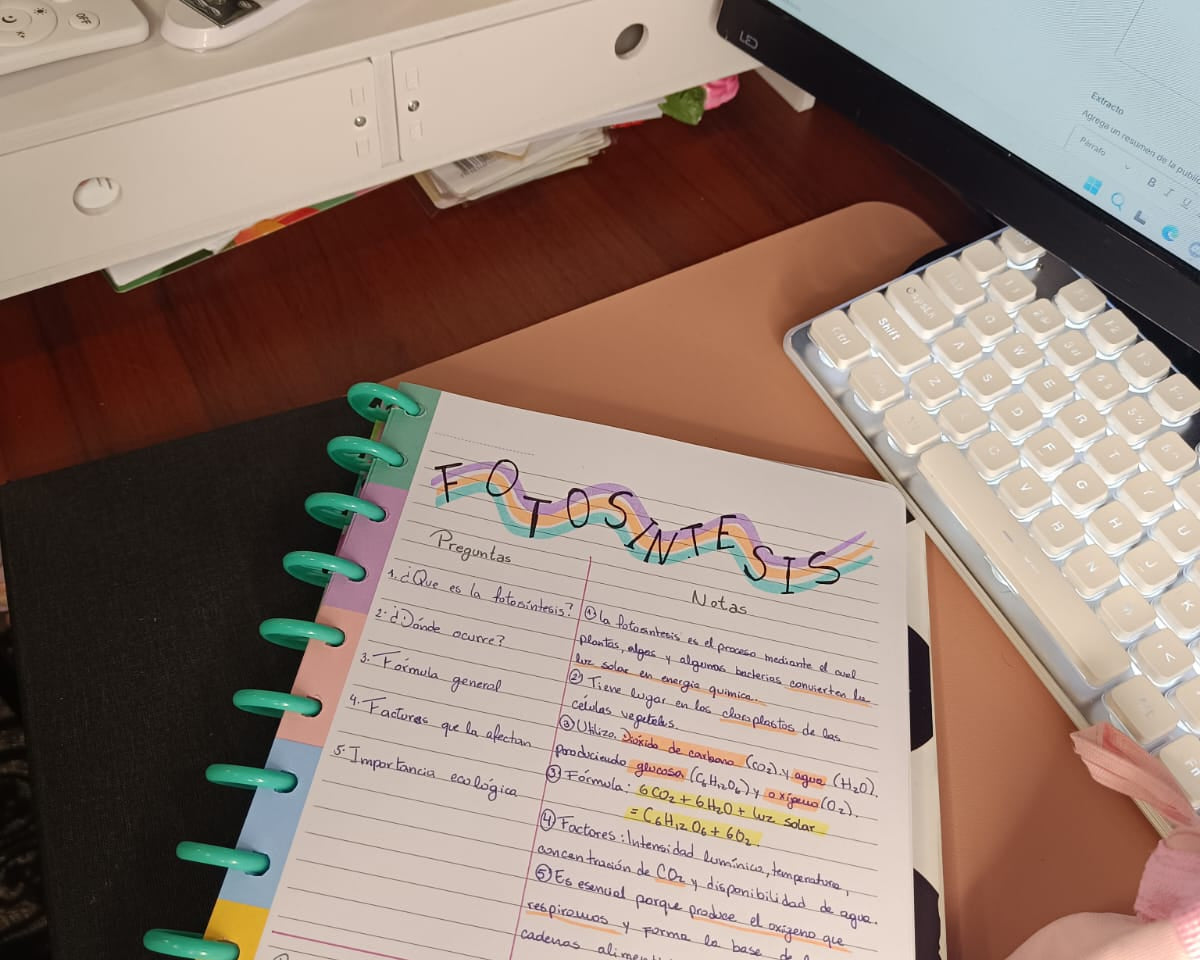 OFF
LED
Extracto
Agrega un resumen de la public
Párrafo
B I U
Ctrl
Shift
CapsLk
Q W E R T Y U
A S D F G H J K
Z C V B N
FOTOSINTESIS
Preguntas
1. ¿Que es la fotosíntesis?
2. ¿Dónde ocurre?
3. Fórmula general
4. Factores que la afectan
5. Importancia ecológica
Notas
① La fotosintesis es el proceso mediante el cual
plantas, algas y algunas bacterias convierten la
luz solar en energia quimica.
② Tiene lugar en los cloroplastos de las
células vegetales.
③ Utiliza Dióxido de carbono (CO₂) y agua (H₂O).
produciendo glucosa (C₆H₁₂O₆) y oxígeno (O₂).
③ Fórmula: 6CO₂ + 6H₂O + luz solar
= C₆H₁₂O₆ + 6O₂
④ Factores: Intensidad lumínica, temperatura,
concentración de CO₂ y disponibilidad de agua.
⑤ Es esencial porque produce el oxígeno que
respiramos y forma la base de
cadenas